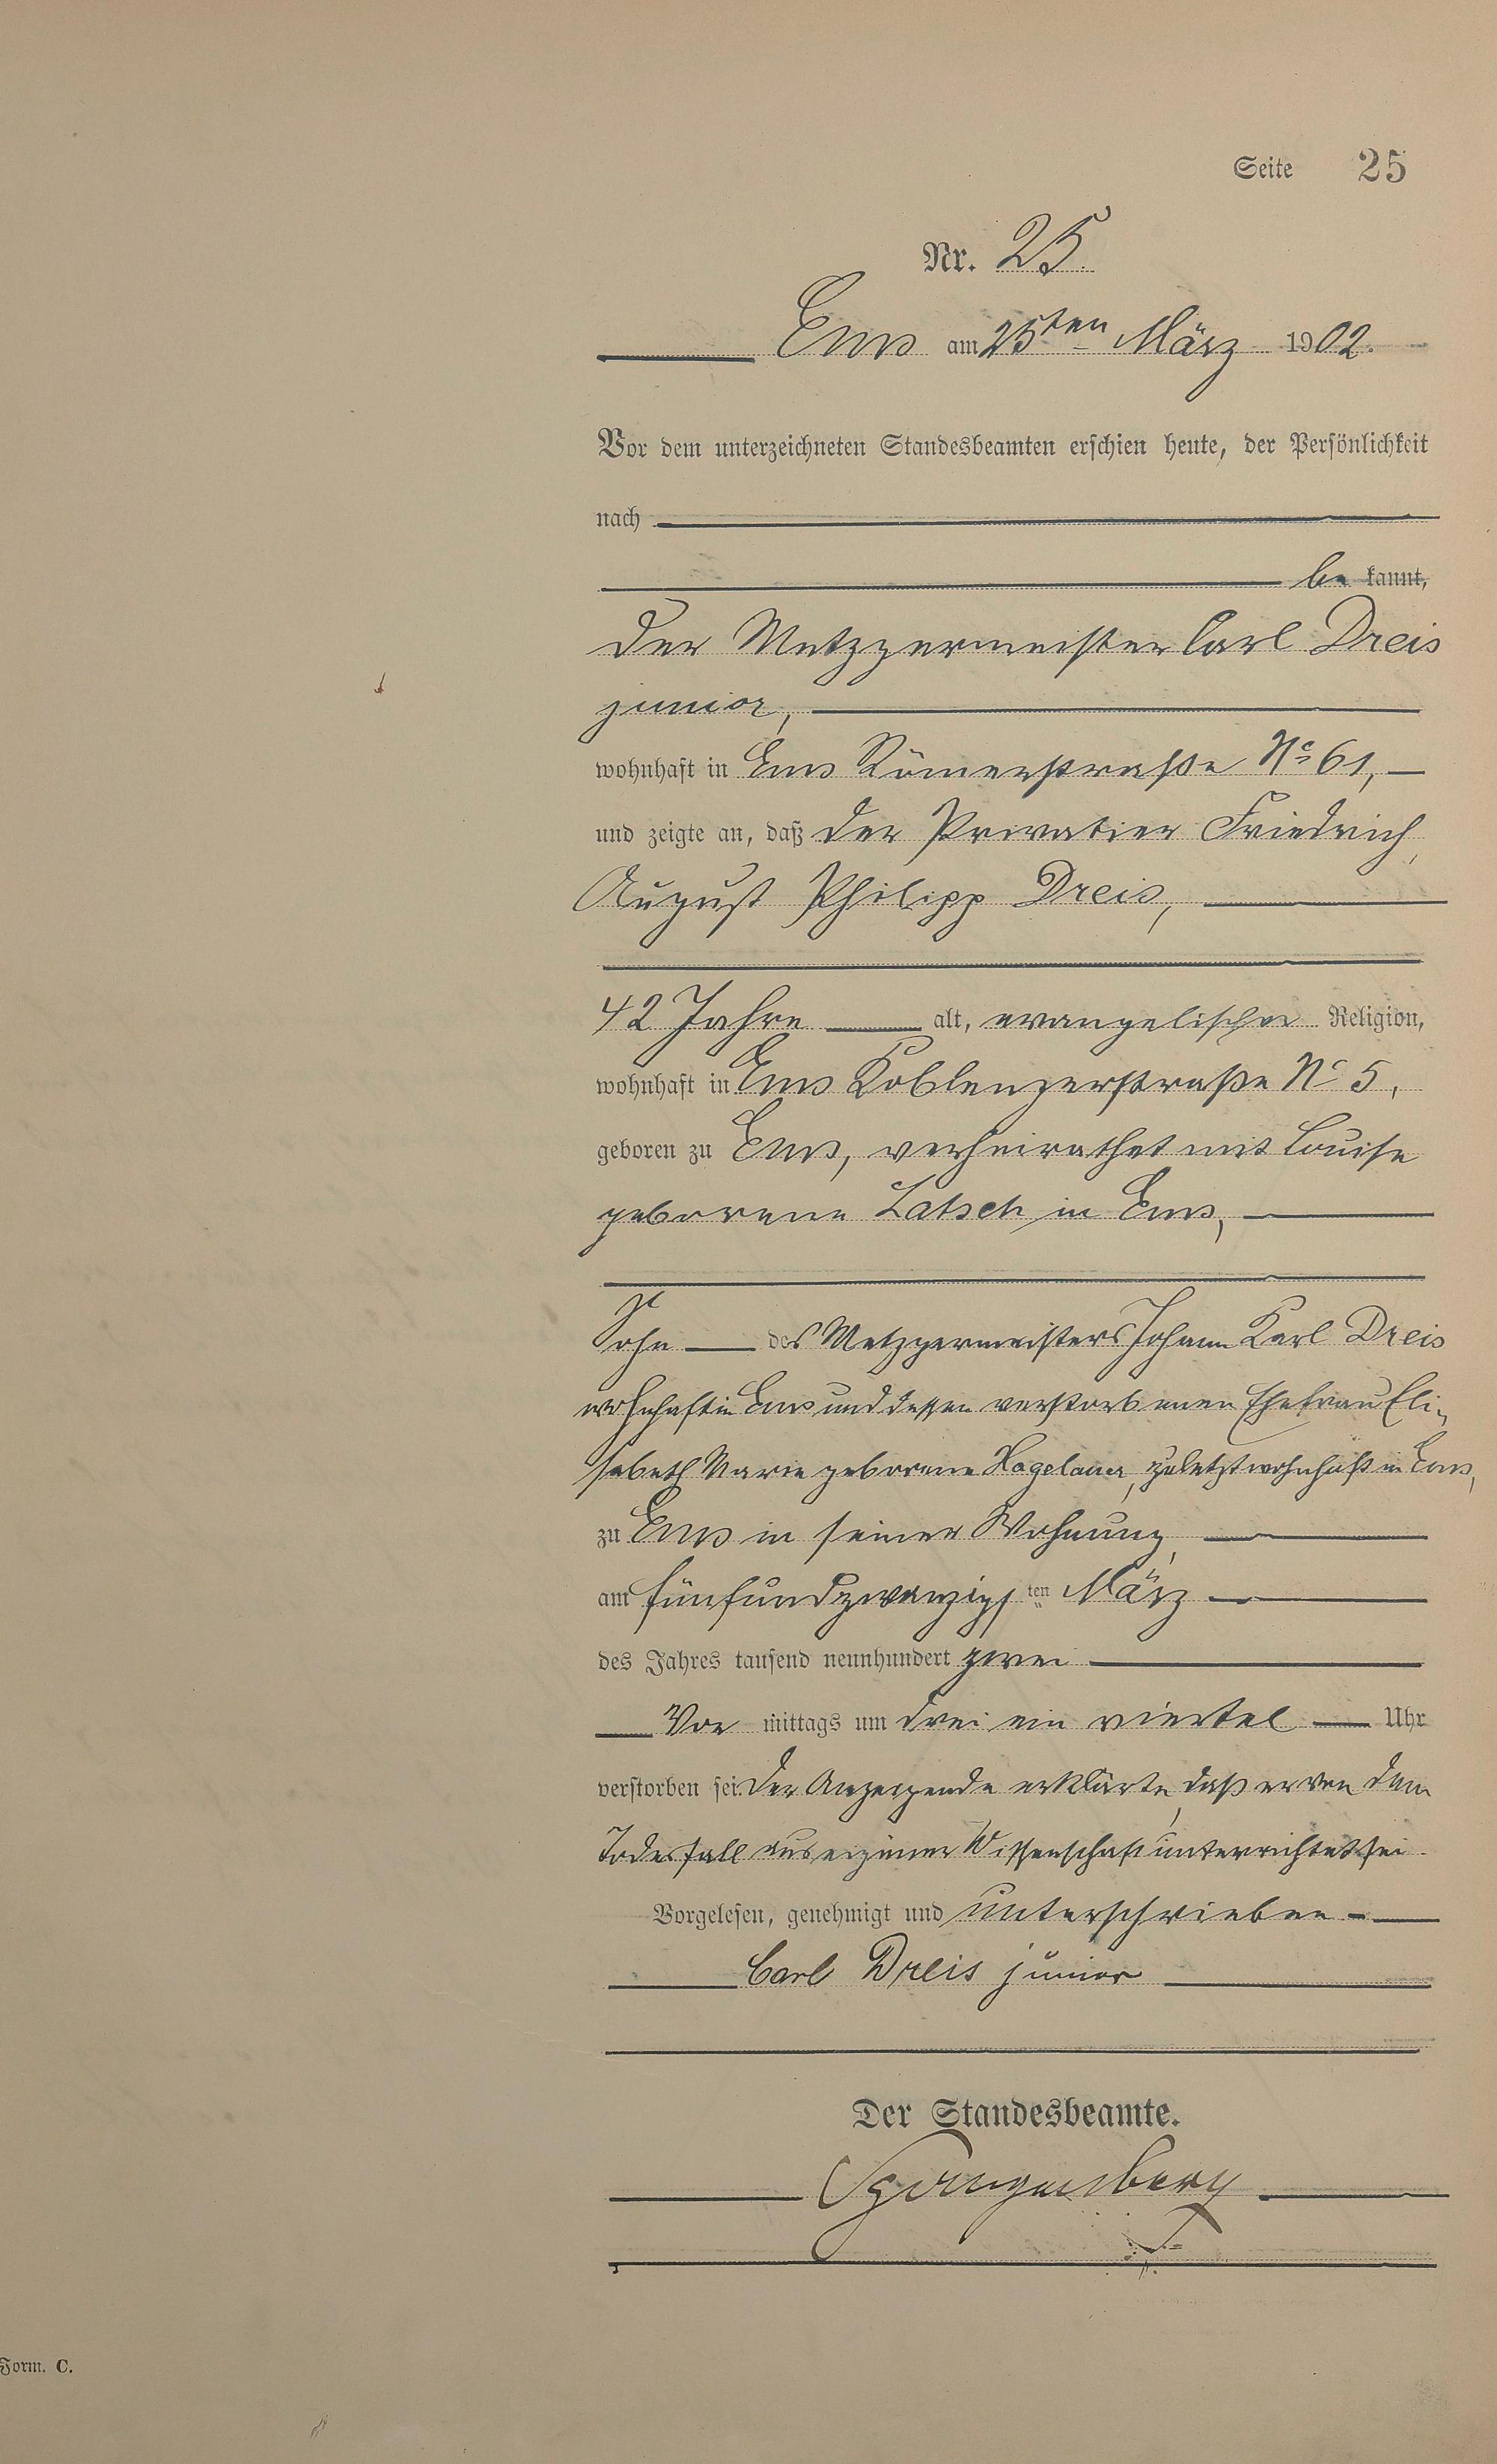 Seite 25
Nr. 25.
Ems am 25ten März 1902.
Vor dem unterzeichneten Standesbeamten erschien heute, der Persönlichkeit
nach
be kannt,
der Metzgermeister Carl Dreis
junior,
wohnhaft in Ems Römerstraße No 61,
und zeigte an, daß der Privatier Friedrich,
August Philipp Dreis,
42 Jahre alt, evangelischer Religion,
wohnhaft in Ems Koblenzerstraße No 5,
geboren zu Ems, verheirathet mit Louise
geborene Latsch in Ems,
Sohn des Metzgermeisters Johann Karl Dreis
wohnhaft in Ems und dessen verstorbenen Ehefrau Eli-
sabeth Marie geborene Hagelauer, zuletzt wohnhaft in Ems,
zu Ems in seiner Wohnung,
am fünfundzwanzigsten März
des Jahres tausend neunhundert zwei
Vor mittags um drei ein viertel Uhr
verstorben sei. Der Anzeigende erklärte, daß er von dem
Todesfall aus eigener Wissenschaft unterrichtet sei.
Vorgelesen, genehmigt und unterschrieben
Carl Dreis junior
Der Standesbeamte.
Spangenberg
Form. C.